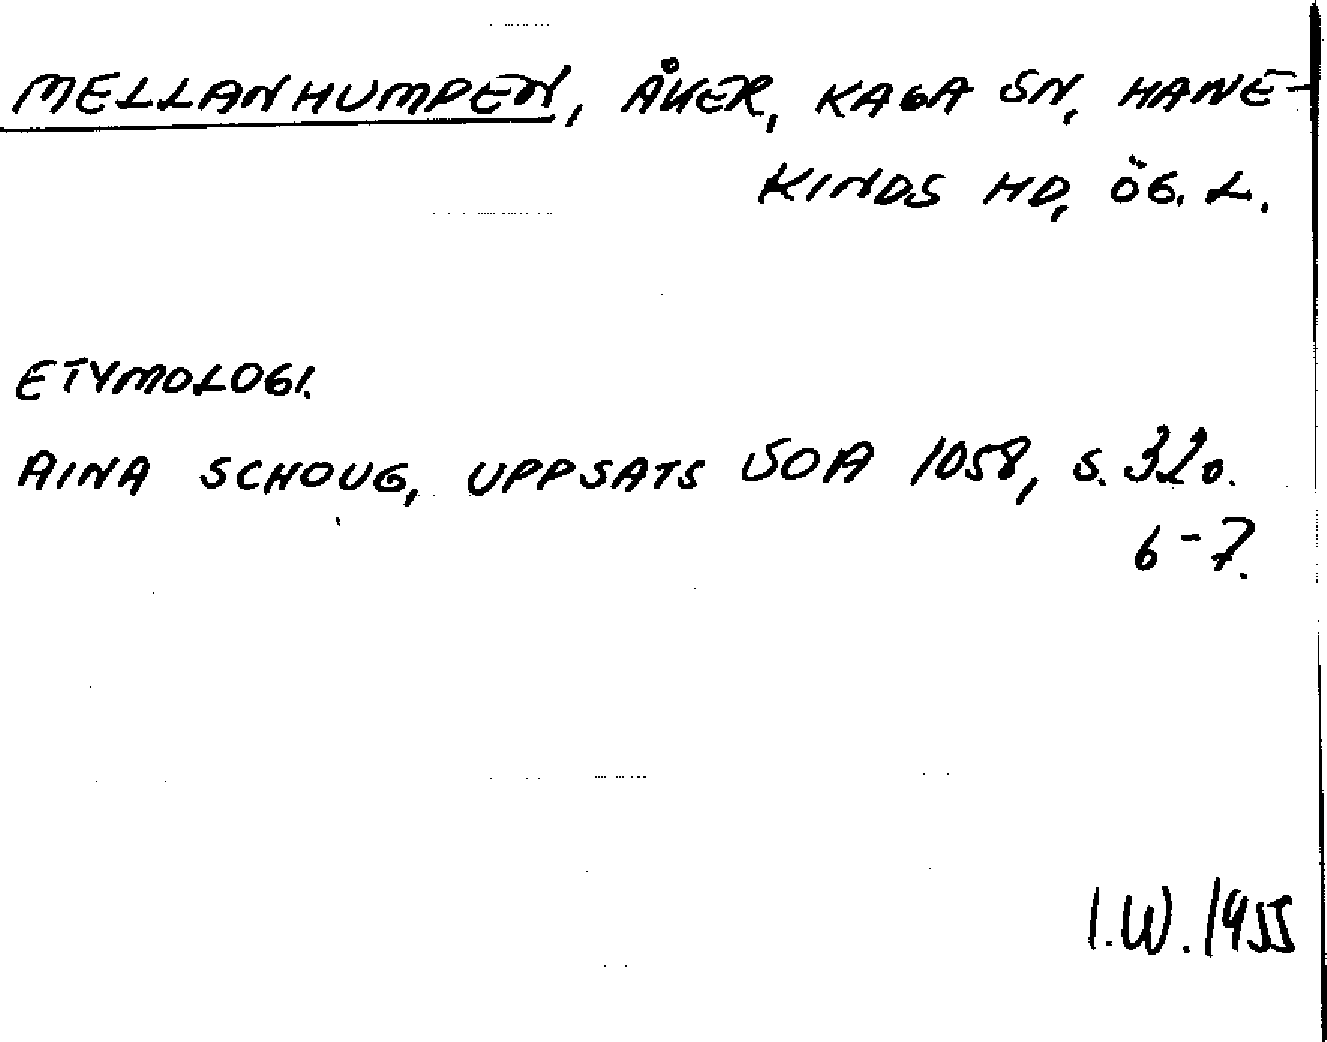 MELLANHUMPEN, ÅKER, KAGA SN, HANE-
KINDS HD, ÖG. L.
ETYMOLOGI.
AINA SCHOUG, UPPSATS SOA 1058, S. 32 o.
6-7.
I.W. 1955